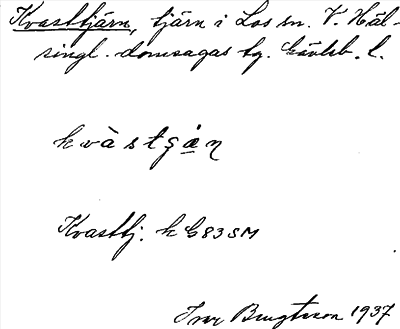 Kvasttjärn, tjärn i Los sn. V. Häl-
singl. domsagas tg. Gävleb. l.
kvàstgạ̊n
Kvasttj. k G83SM
Ivar Bengtsson 1937